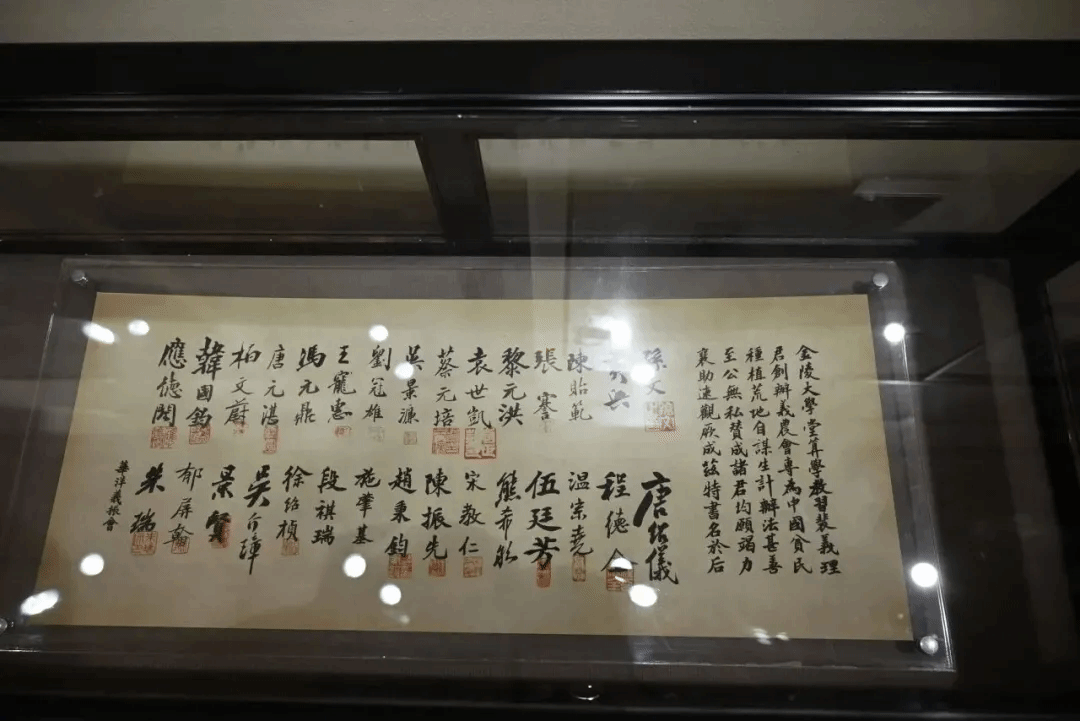 金陵大學堂算學教習裴義理
君創辦義農會專為中國貧民
種植荒地自謀生計辦法甚善
至公無私贊成諸君均願竭力
襄助速觀厥成茲特書名於后
孫文
興
陳貽範
張謇
黎元洪
袁世凱
蔡元培
吳景濂
劉冠雄
王寵惠
馮元鼎
唐元湛
柏文蔚
韓國鈞
應德閎
唐紹儀
程德全
溫宗堯
伍廷芳
熊希齡
宋教仁
陳振先
趙秉鈞
施肇基
段祺瑞
徐紹楨
吳介璋
景賢
郁屏翰
朱瑞
華洋義振會